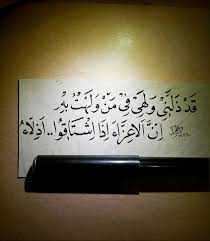 قَدْ ذَلَّنِي وَلَهِي فِي مَنْ وَلِهْتُ بِهِ
إِنَّ الأَعِزَّاءَ إِذَا اشْتَاقُوا.. أَذِلَّاءُ